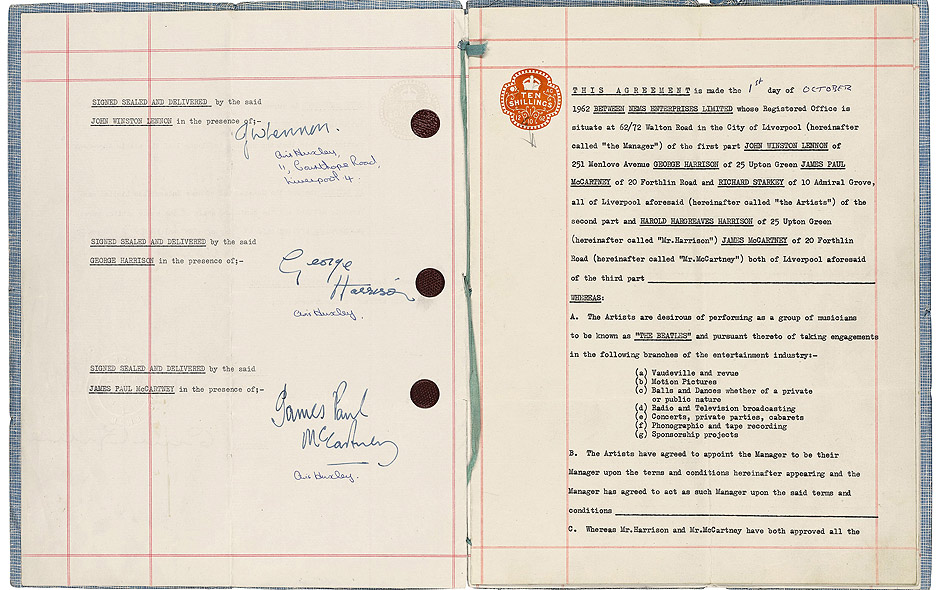 SIGNED SEALED AND DELIVERED by the said
JOHN WINSTON LENNON in the presence of;-
JWLennon.
Huxley,
11, Road,
Liverpool 4.
SIGNED SEALED AND DELIVERED by the said
GEORGE HARRISON in the presence of;-
George
Harrison
Huxley.
SIGNED SEALED AND DELIVERED by the said
JAMES PAUL McCARTNEY in the presence of;-
James Paul
McCartney
Huxley.
TEN
SHILLINGS
THIS AGREEMENT is made the 1st day of OCTOBER
1962 BETWEEN NEMS ENTERPRISES LIMITED whose Registered Office is
situate at 62/72 Walton Road in the City of Liverpool (hereinafter
called "the Manager") of the first part JOHN WINSTON LENNON of
251 Menlove Avenue GEORGE HARRISON of 25 Upton Green JAMES PAUL
McCARTNEY of 20 Forthlin Road and RICHARD STARKEY of 10 Admiral Grove,
all of Liverpool aforesaid (hereinafter called "the Artists") of the
second part and HAROLD HARGREAVES HARRISON of 25 Upton Green
(hereinafter called "Mr.Harrison") JAMES McCARTNEY of 20 Forthlin
Road (hereinafter called "Mr.McCartney") both of Liverpool aforesaid
of the third part
WHEREAS:
A. The Artists are desirous of performing as a group of musicians
to be known as "THE BEATLES" and pursuant thereto of taking engagements
in the following branches of the entertainment industry:-
(a) Vaudeville and revue
(b) Motion Pictures
(c) Balls and Dances whether of a private
or public nature
(d) Radio and Television broadcasting
(e) Concerts, private parties, cabarets
(f) Phonographic and tape recording
(g) Sponsorship projects
B. The Artists have agreed to appoint the Manager to be their
Manager upon the terms and conditions hereinafter appearing and the
Manager has agreed to act as such Manager upon the said terms and
conditions
C. Whereas Mr.Harrison and Mr.McCartney have both approved all the